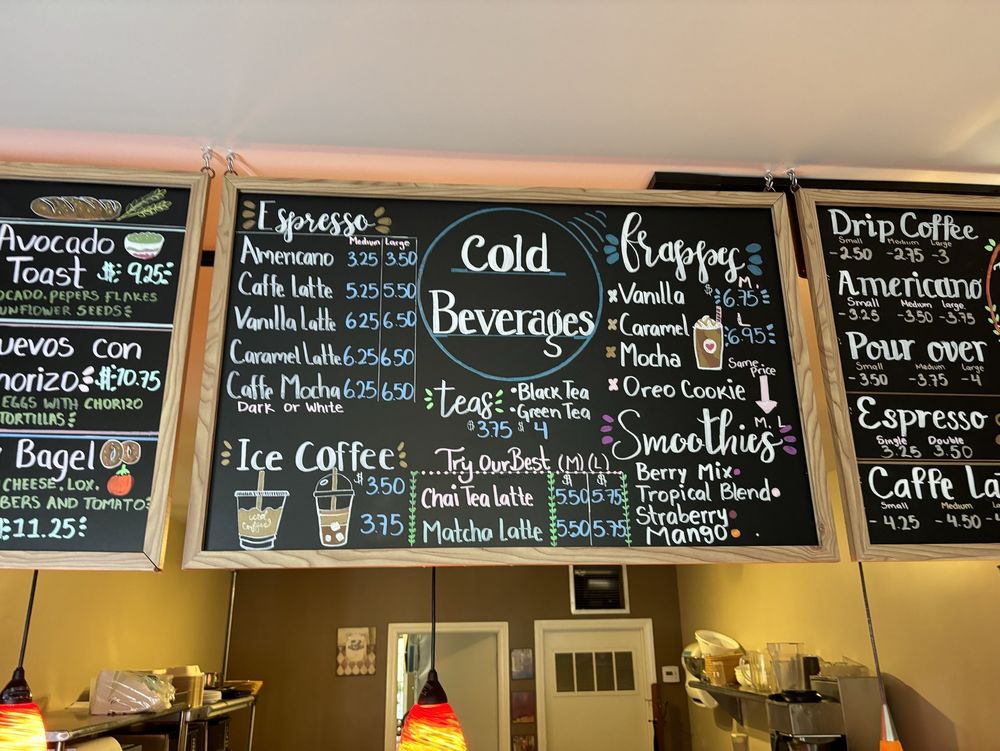 Avocado
Toast $: 9.25
OCADO, PEPERS FLAKES
UNFLOWER SEEDS
uevos con
horizo $:10.75
EGGS WITH CHORIZO
TORTILLAS
Bagel
CHEESE, LOX,
BERS AND TOMATO
11.25
Espresso
Medium Large
Americano 3.25 3.50
Caffe Latte 5.25 5.50
Vanilla Latte 6.25 6.50
Caramel Latte 6.25 6.50
Caffe Mocha 6.25 6.50
Dark or White
Ice Coffee
$ 3.50
3.75
Iced
Coffee
Cold
Beverages
teas
•Black Tea
•Green Tea
$3.75 $4
Try Our Best (M) (L)
$ $
Chai Tea latte 5.50 5.75
Matcha Latte 5.50 5.75
frappes
M.
Vanilla $6.75
Caramel L
6.95
Mocha
Same Price
Oreo Cookie
M. L
Smoothies
Berry Mix
Tropical Blend
Straberry
Mango
Drip Coffee
Small Medium Large
-2.50 -2.75 -3
Americano
Small Medium Large
-3.25 -3.50 -3.75
Pour over
Small Medium Large
-3.50 -3.75 -4
Espresso
Single Double
3.25 3.50
Caffe La
Small Medium Large
-4.25 -4.50 -4